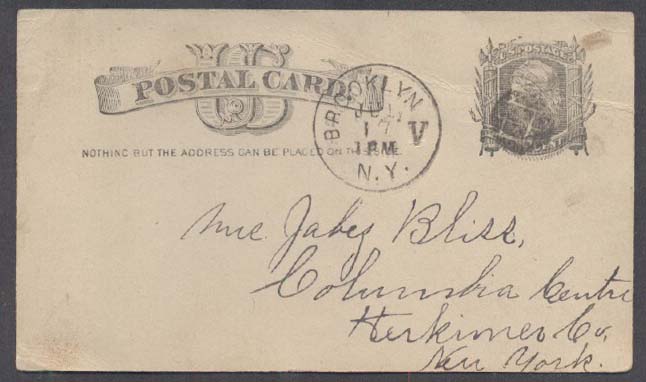 U S
POSTAL CARD
NOTHING BUT THE ADDRESS CAN BE PLACED ON THIS SIDE.
U.S. POSTAGE
BROOKLYN
17
1 PM
N.Y.
V
Jabez Bliss,
Columbia Centre
Herkimer Co,
New York.